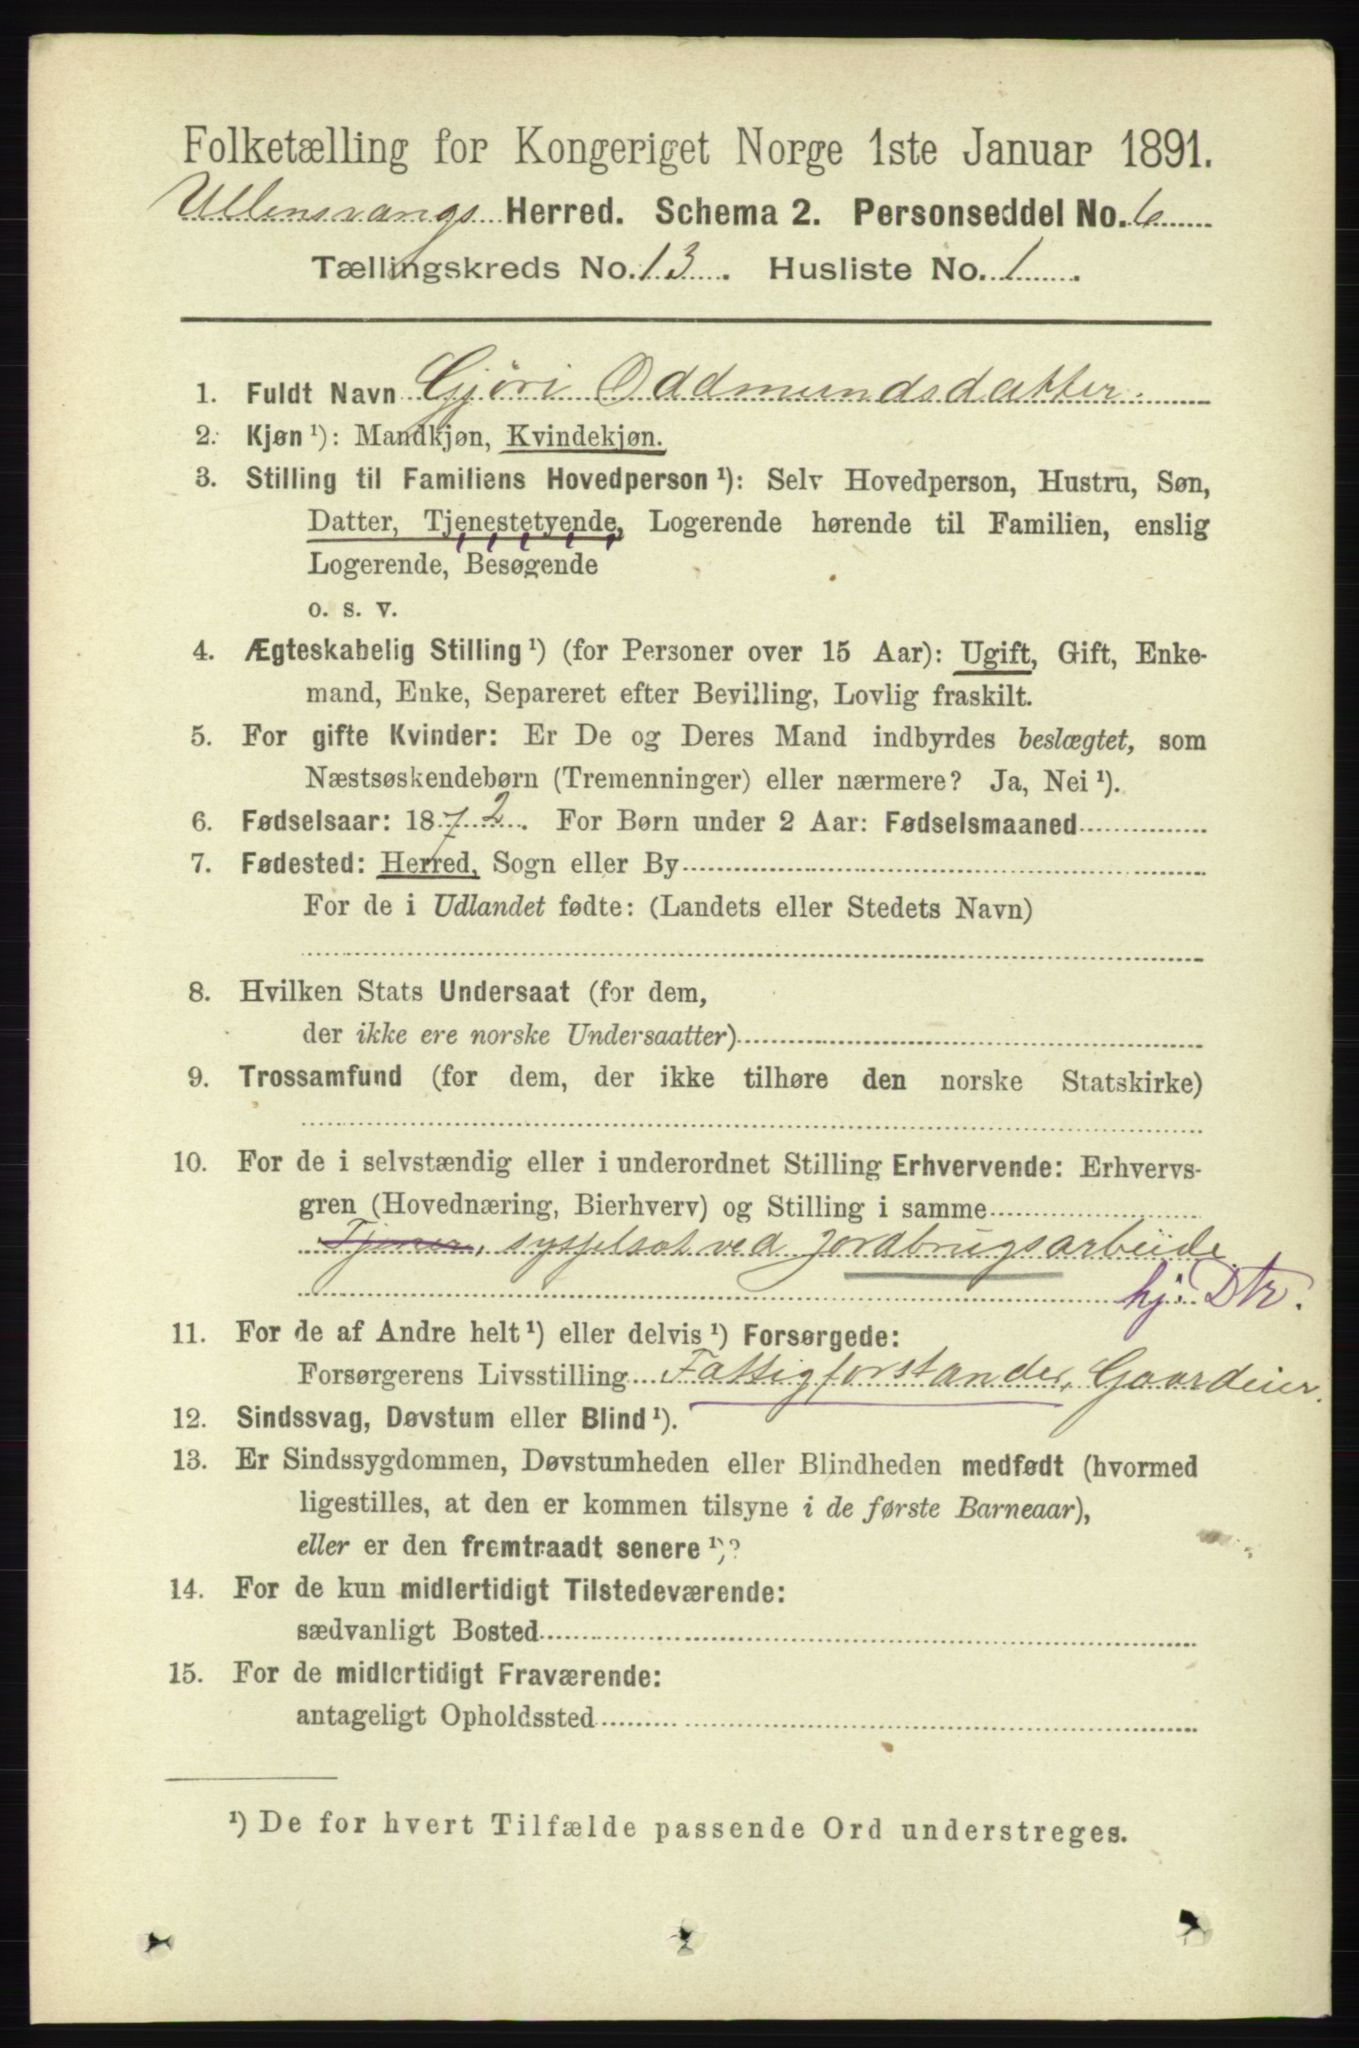 Folketælling for Kongeriget Norge 1ste Januar 1891.
Ullensvangs Herred. Schema 2. Personseddel No. 6
Tællingskreds No. 13. Husliste No. 1.
1. Fuldt Navn Gjøri Oddmundsdatter.
2. Kjøn ¹): Mandkjøn, Kvindekjøn.
3. Stilling til Familiens Hovedperson ¹): Selv Hovedperson, Hustru, Søn,
Datter, Tjenestetyende, Logerende hørende til Familien, enslig
Logerende, Besøgende
o. s. v.
4. Ægteskabelig Stilling ¹) (for Personer over 15 Aar): Ugift, Gift, Enke-
mand, Enke, Separeret efter Bevilling, Lovlig fraskilt.
5. For gifte Kvinder: Er De og Deres Mand indbyrdes beslægtet, som
Næstsøskendebørn (Tremenninger) eller nærmere? Ja, Nei ¹).
6. Fødselsaar: 1872. For Børn under 2 Aar: Fødselsmaaned
7. Fødested: Herred, Sogn eller By
For de i Udlandet fødte: (Landets eller Stedets Navn)
8. Hvilken Stats Undersaat (for dem,
der ikke ere norske Undersaatter)
9. Trossamfund (for dem, der ikke tilhøre den norske Statskirke)
10. For de i selvstændig eller i underordnet Stilling Erhvervende: Erhvervs-
gren (Hovednæring, Bierhverv) og Stilling i samme
Tjener, sysselsat ved Jordbrugsarbeide
hj: Dtr.
11. For de af Andre helt ¹) eller delvis ¹) Forsørgede:
Forsørgerens Livsstilling Fattigforstander, Gaardeier.
12. Sindssvag, Døvstum eller Blind ¹).
13. Er Sindssygdommen, Døvstumheden eller Blindheden medfødt (hvormed
ligestilles, at den er kommen tilsyne i de første Barneaar),
eller er den fremtraadt senere ¹)?
14. For de kun midlertidigt Tilstedeværende:
sædvanligt Bosted
15. For de midlertidigt Fraværende:
antageligt Opholdssted
¹) De for hvert Tilfælde passende Ord understreges.